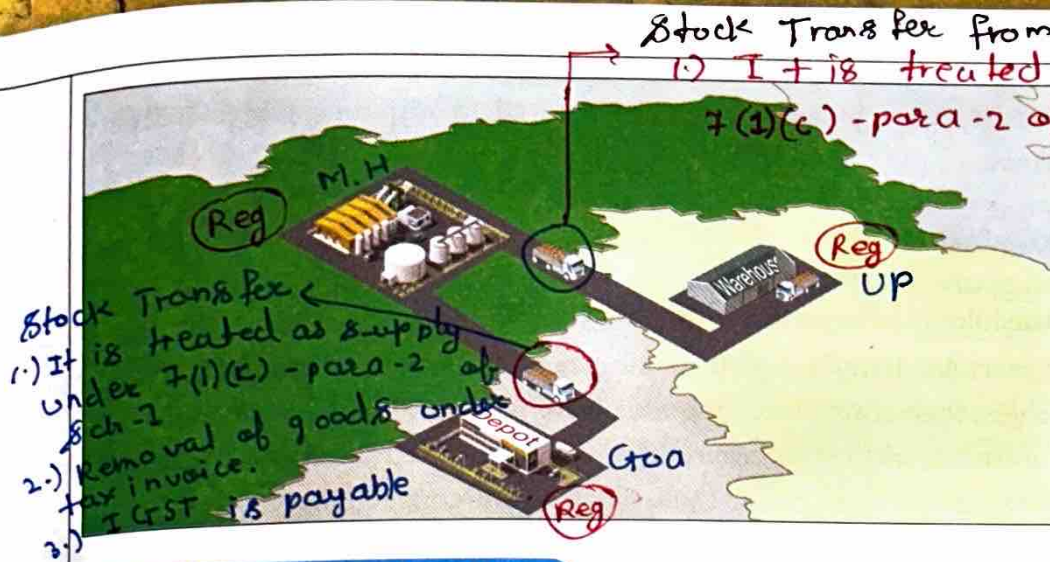 Stock Transfer from
1.) It is treated
7(1)(c) - para - 2 o
M.H
Reg
Reg
Warehouse
UP
Stock Transfer
1.) It is treated as supply
under 7(1)(c) - para - 2 of
Sch - I
2.) Removal of goods under
tax invoice.
3.) IGST is payable
Depot
Goa
Reg